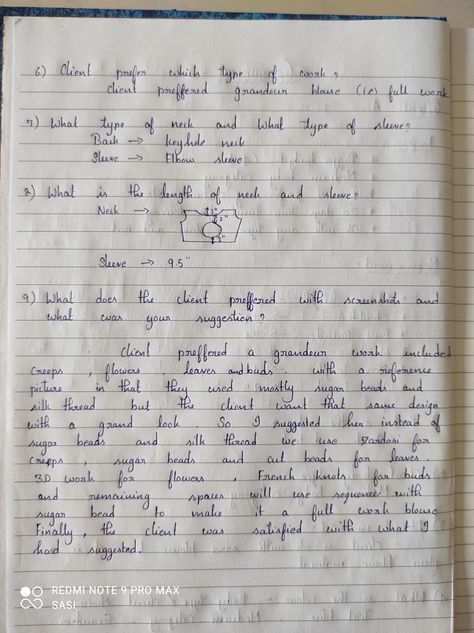 6) Client prefer which type of work?
client preffered grandeur blouse (i.e) full work
7) What type of neck and What type of sleeve?
Back → Keyhole neck
Sleeve → Elbow sleeve
8) What is the length of neck and sleeve?
Neck →
Sleeve → 9.5"
9) What does the client preffered with screenshots and
what was your suggestion?
Client preffered a grandeur work included
creeps, flowers, leaves and buds. with a reference
picture in that they used mostly sugar beads and
silk thread but the client want that same design
with a grand look. So I suggested her instead of
sugar beads and silk thread we use Zardosi for
creeps, sugar beads and cut beads for leaves.
3D work for flowers, French knots for buds
and remaining spaces will use sequence with
sugar bead to make it a full work blouse
Finally, the client was satisfied with what I
had suggested.
REDMI NOTE 9 PRO MAX
SASI